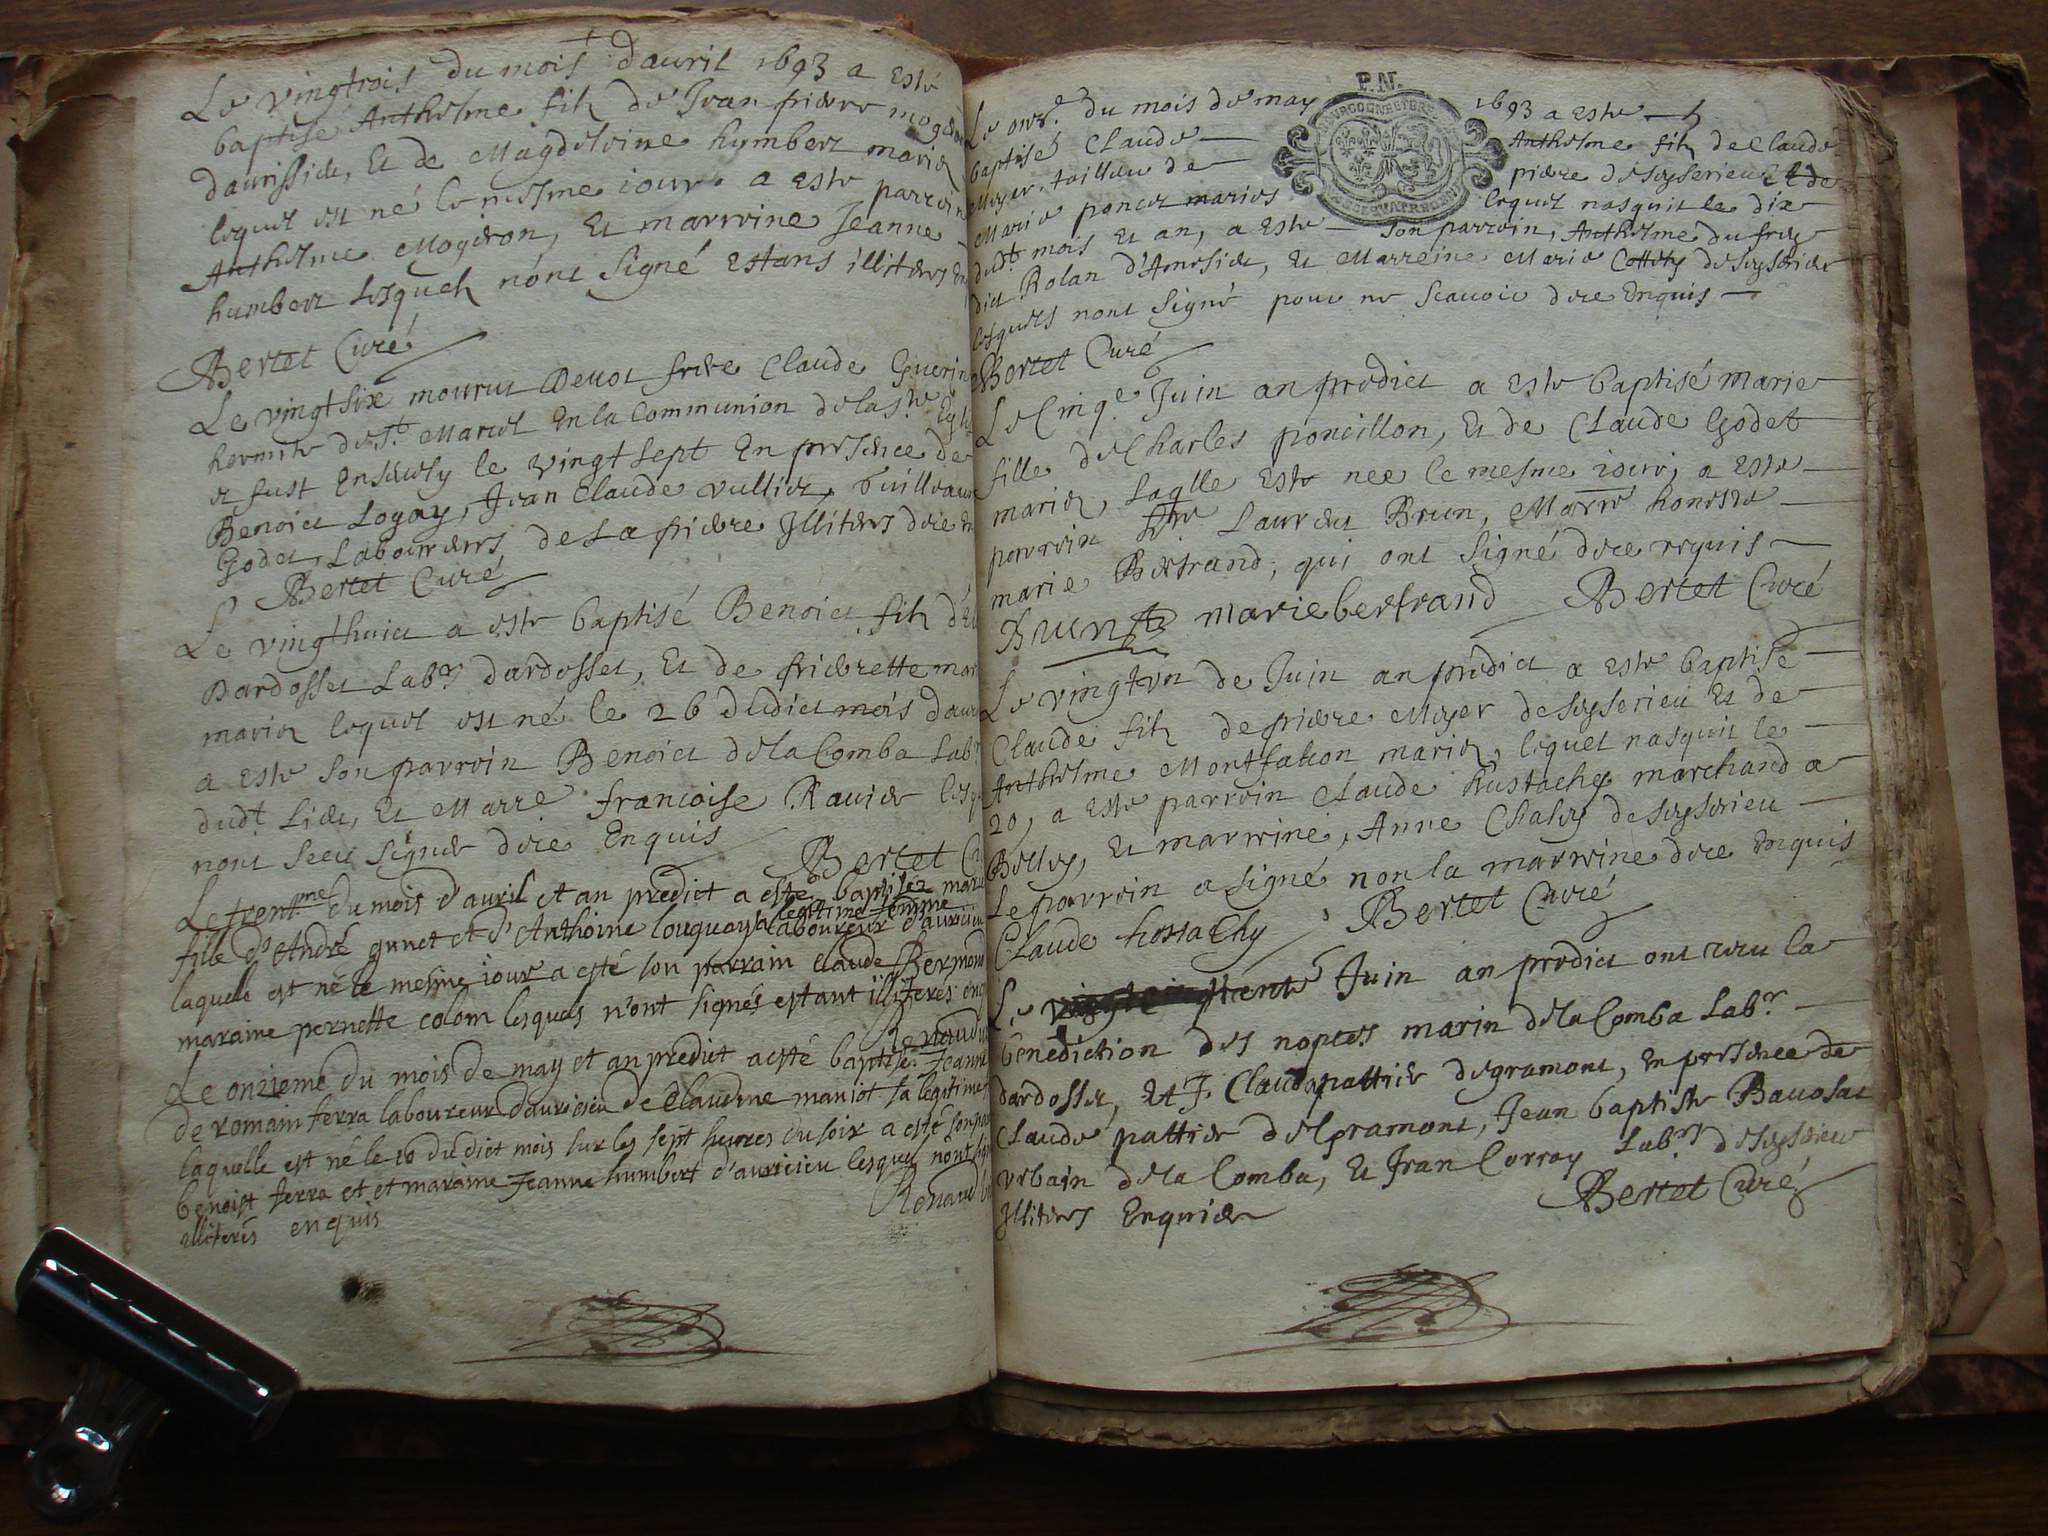 Le vingtrois du mois d'avril 1693 a esté
baptisé Anthelme filz de Jean pierre
et de Magdeleine humbert mariez
lequel est né le mesme iour. a esté parrein
Anthelme Mogeron, et marreine Jeanne
humbert lesquelz n'ont signé estans illiteres
Bertet Curé
Le vingtsix mourut Devot frere Claude Guerin
hermite de St. Marcel en la Communion de la ste
et fust Ensevely le vingt sept En presence de
Benoict Logoy, Jean Claude vullier,
Godet, Laboureurs de La pierre Illiters
Bertet Curé
Le vingthuict a esté baptisé Benoict filz
Dardosset Labr. dardosset, et de pierrette
mariez lequel est né le 26 dudict mois
a esté son parrein Benoict dela Comba Labr
dudt. Lieu, et Marre. francoise Ravier
nont sceu signer Enquis
Bertet
Le trentme du mois d'avril et an predict a esté baptisée
legitime femme
fille d'André gunet et d'Anthoine laboureur d'auricieu
laquelle est né le mesme iour a esté son parrain claude Bermond
maraine pernette colom lesquels n'ont signés estant illiteres
Renaud
Le onzieme du mois de may et an predict a esté baptisé Jeanne
de romain ferra laboureur d'auricieu de Claudine maniot sa legitime
laquelle est né le 10 du dict mois sur les sept heures du soir a esté son
benoist ferra et et maraine Jeanne humbert d'auricieu lesquels n'ont
illiterés enquis
Renaud
P.N.
Le onze. du mois de may 1693 a esté
baptisé Claude Anthelme filz de Claude
Moyer, tailleur de pierre de seyserieu et de
Marie poncet mariez lequel nasquit le dix
dudt. mois et an, a esté son parrein, Anthelme
dict Rolan et Marreine Marie de seyserieu
lesquels nont signé pour ne scavoir Enquis
Bertet Curé
Le Cinqe. Juin an predict a esté baptisé marie
fille de Charles poncillon, et de Claude Godet
mariez, laqlle Este nee le mesme iour, a esté
parrein Laurent Brun, Marre honeste
marie Bertrand, qui ont signé requis
Brun marie bertrand Bertet Curé
Le vingt un de Juin an predict a esté baptisé
Claude filz de pierre Moyer de seyserieu et de
Anthelme Montfalcon mariez, lequel nasquit le
20, a esté parrein Claude Eustache marchand a
Belley, et marreine, Anne Chaley de seyserieu
Le parrein a signé non la marreine Enquis
Claude Bertet Curé
Le trente Juin an predict ont receu la
benediction des nopces marin dela Comba Labr.
dardosset, et J. Claude pattier degramont, En presence de
Claude pattier de gramont, Jean baptiste Bavosat
urbain dela Comba, et Jean Corray Labrs. de seyserieu
Illiters Enquis
Bertet Curé